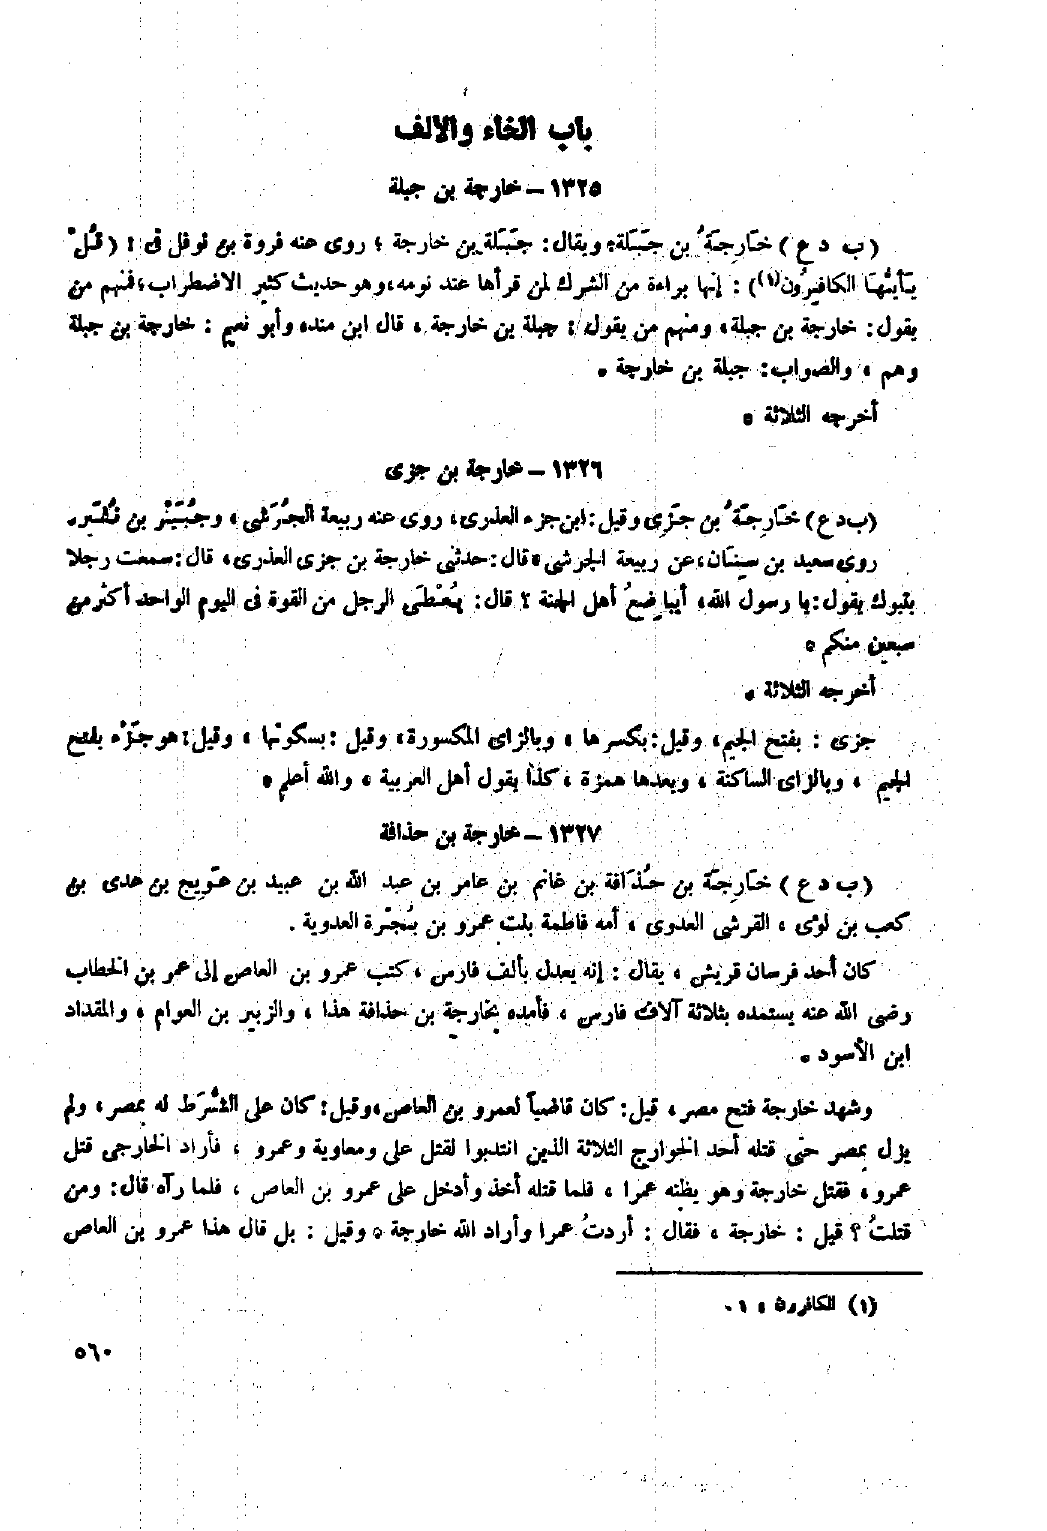 باب الخاء والألف
١٣٢٥ – خارجة بن جبلة
(ب د ع) خَارِجَةُ بن جَبَلة، ويقال: جَبَلة بن خارجة ؛ روى عنه فروة بن نوفل فى : (قُلْ
يَأيُّهَا الكافِرُون(١)) : إنها براءة من الشرك لمن قرأها عند نومه، وهو حديث كثير الاضطراب، فمنهم من
يقول: خارجة بن جبلة، ومنهم من يقول: جبلة بن خارجة ، قال ابن منده وأبو نعيم : خارجة بن جبلة
وهم ، والصواب: جبلة بن خارجة .
أخرجه الثلاثة .
١٣٢٦ – خارجة بن جزى
(ب د ع) خَارِجَةُ بن جَزِى وقيل: ابن جزء العذرى، روى عنه ربيعة الجُرَشى ، وجُبَيْر بن نُفَير.
روى سعيد بن سِنَان، عن ربيعة الجرشى . قال: حدثنى خارجة بن جزى العذرى، قال: سمعت رجلا
بتبوك يقول: يا رسول الله، أيباضعُ أهل الجنة ؟ قال: يُعْطَى الرجل من القوة فى اليوم الواحد أكثر من
سبعين منكم .
أخرجه الثلاثة .
جزى : بفتح الجيم، وقيل: بكسرها ، وبالزاى المكسورة، وقيل: بسكونها ، وقيل: هو جَزْء بفتح
الجيم ، وبالزاى الساكنة ، وبعدها همزة ، كذا يقول أهل العربية ، والله أعلم .
١٣٢٧ – خارجة بن حذافة
(ب د ع) خَارِجَة بن حُذَافة بن غانم بن عامر بن عبد الله بن عبيد بن عَوِيج بن عدى بن
كعب بن لؤى ، القرشى العدوى ، أمه فاطمة بنت عمرو بن بُجَرة العدوية .
كان أحد فرسان قريش ، يقال : إنه يعدل بألف فارس ، كتب عمرو بن العاص إلى عمر بن الخطاب
رضى الله عنه يستمده بثلاثة آلاف فارس ، فأمده بخارجة بن حذافة هذا ، والزبير بن العوام ، والمقداد
ابن الأسود .
وشهد خارجة فتح مصر، قيل: كان قاضياً لعمرو بن العاص، وقيل: كان على الشُّرَط له بمصر، ولم
يزل بمصر حتى قتله أحد الخوارج الثلاثة الذين انتدبوا لقتل على ومعاوية وعمرو ، فأراد الخارجى قتل
عمرو، فقتل خارجة وهو يظنه عمرا ، فلما قتله أخذ وأدخل على عمرو بن العاص ، فلما رآه قال: ومن
قتلتُ ؟ قيل : خارجة ، فقال : أردتُ عمرا وأراد الله خارجة . وقيل : بل قال هذا عمرو بن العاص
(١) الكافرون ، ١ .
٥٦٠